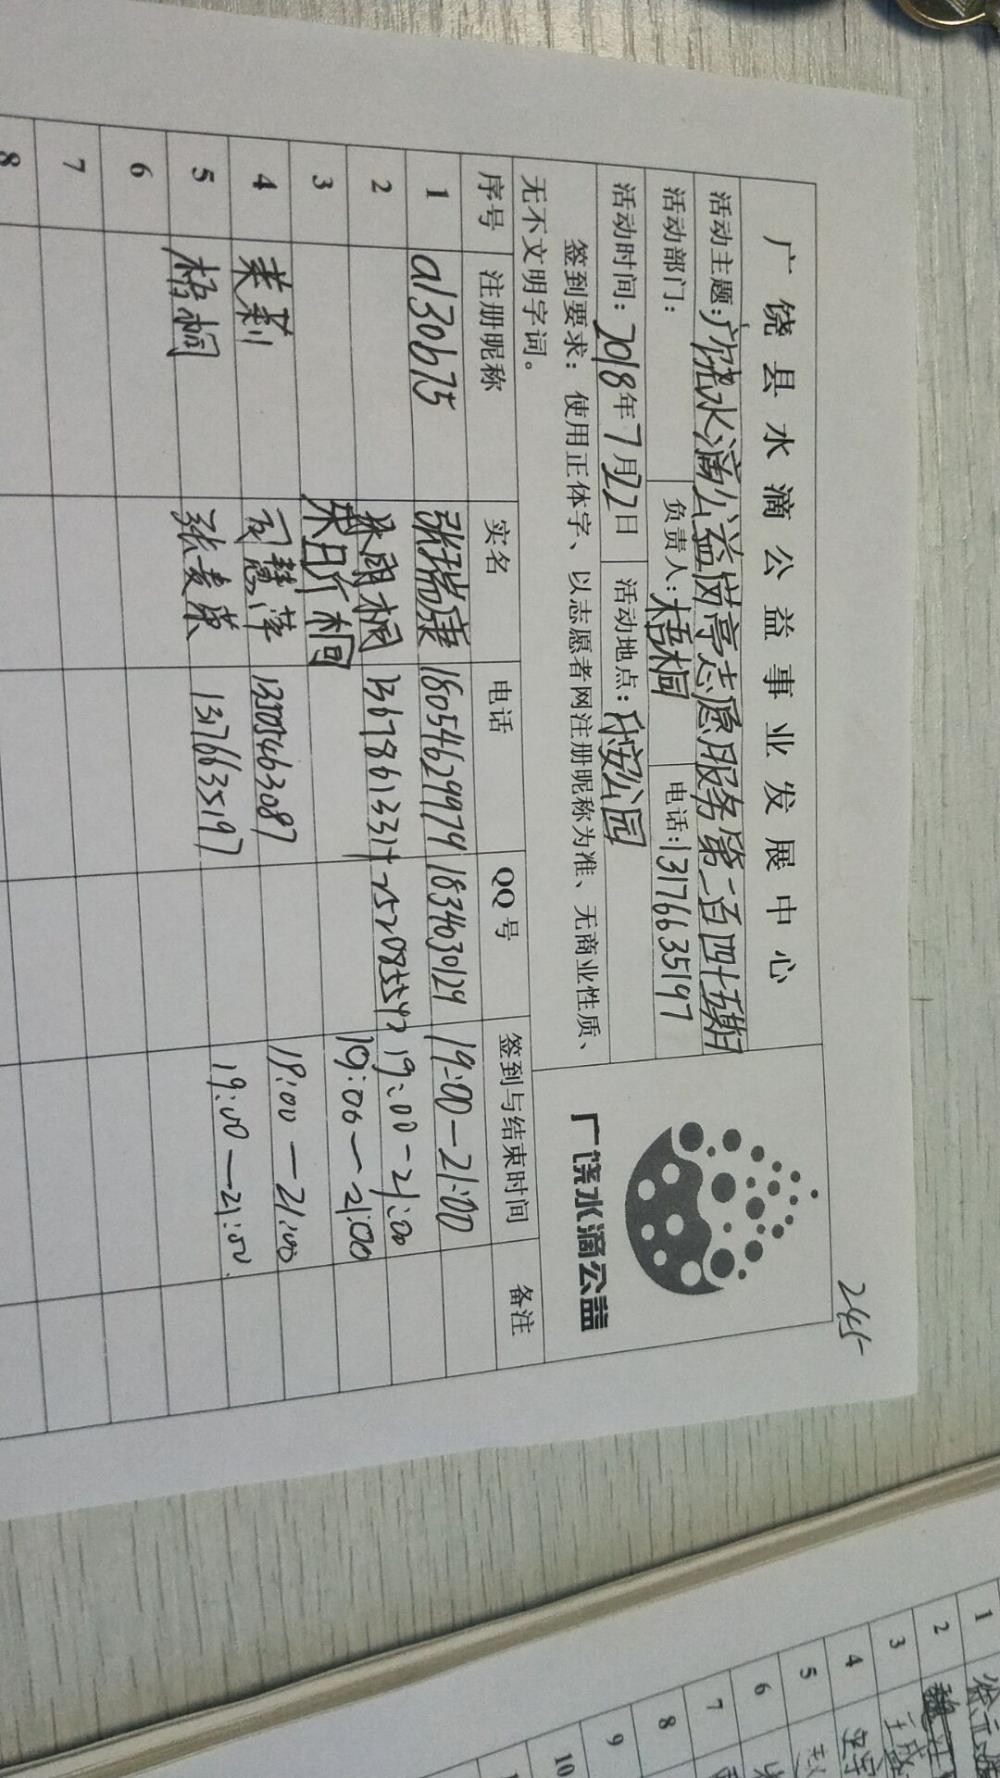 245
广饶县水滴公益事业发展中心
活动主题：广饶水滴公益岗亭志愿服务第二百四十五期
活动部门： 负责人：梧桐 电话：13176635197
活动时间：2018年7月22日 活动地点：月安公园
签到要求：使用正体字、以志愿者网注册昵称为准、无商业性质、
无不文明字词。
广饶水滴公益
序号 注册昵称 实名 电话 QQ号 签到与结束时间 备注
1 a130b75 张瑞康 18054629979 1834030129 19:00—21:00
2 明桐 13678613317 19:00-21:00
3 桐 19:00—21:00
4 茉莉 慧萍 13305463087 19:00—21:00
5 梧桐 张麦荣 13176635197 19:00—21:00
6
7
8
1
2
3
4
5
6
7
8
9
10